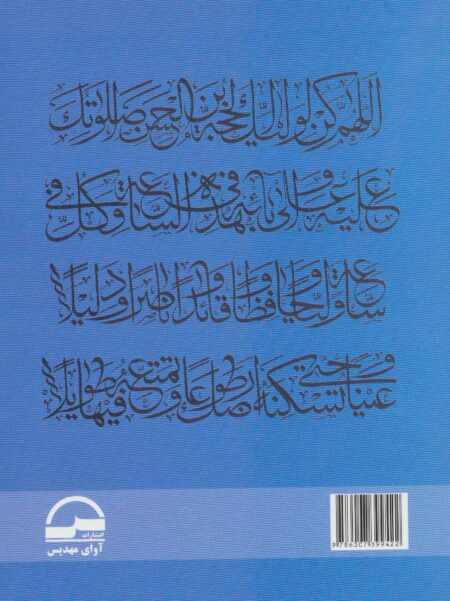 اللهم كن لوليك الحجة بن الحسن صلواتك
عليه وعلى آبائه في هذه الساعة وفي كل
ساعة وليا وحافظا وقائدا وناصرا ودليلا
وعينا حتى تسكنه ارضك طوعا وتمتعه فيها طويلا
انتشارات
آوای مهدیس
9 786007 399422